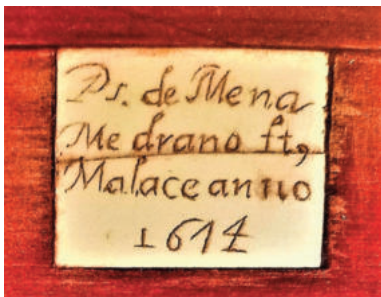 Ps. de Mena
Medrano ft,
Malace anno
1674